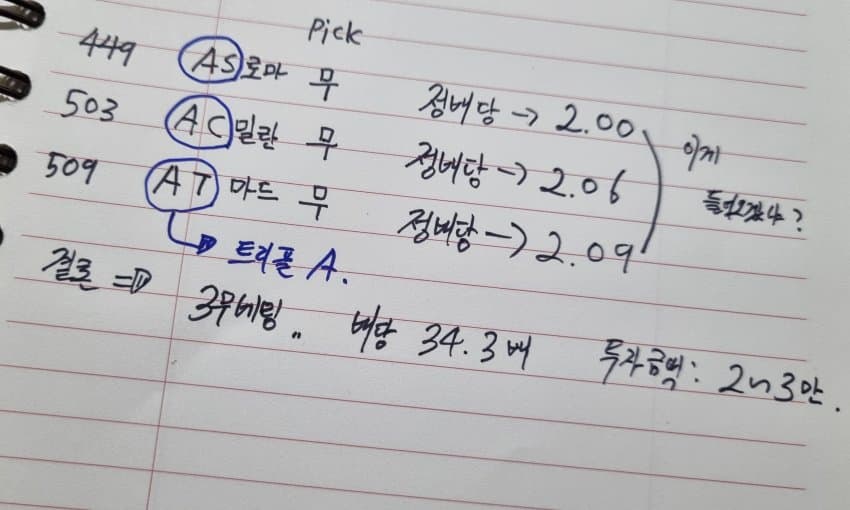 Pick
449 AS로마 무 정배당 → 2.00
503 AC밀란 무 정배당 → 2.06
509 AT마드 무 정배당 → 2.09
이게 들어오겠나?
트리플 A.
결론 ⇒ 3무베팅.. 배당 34.3배 투자금액: 2~3만.